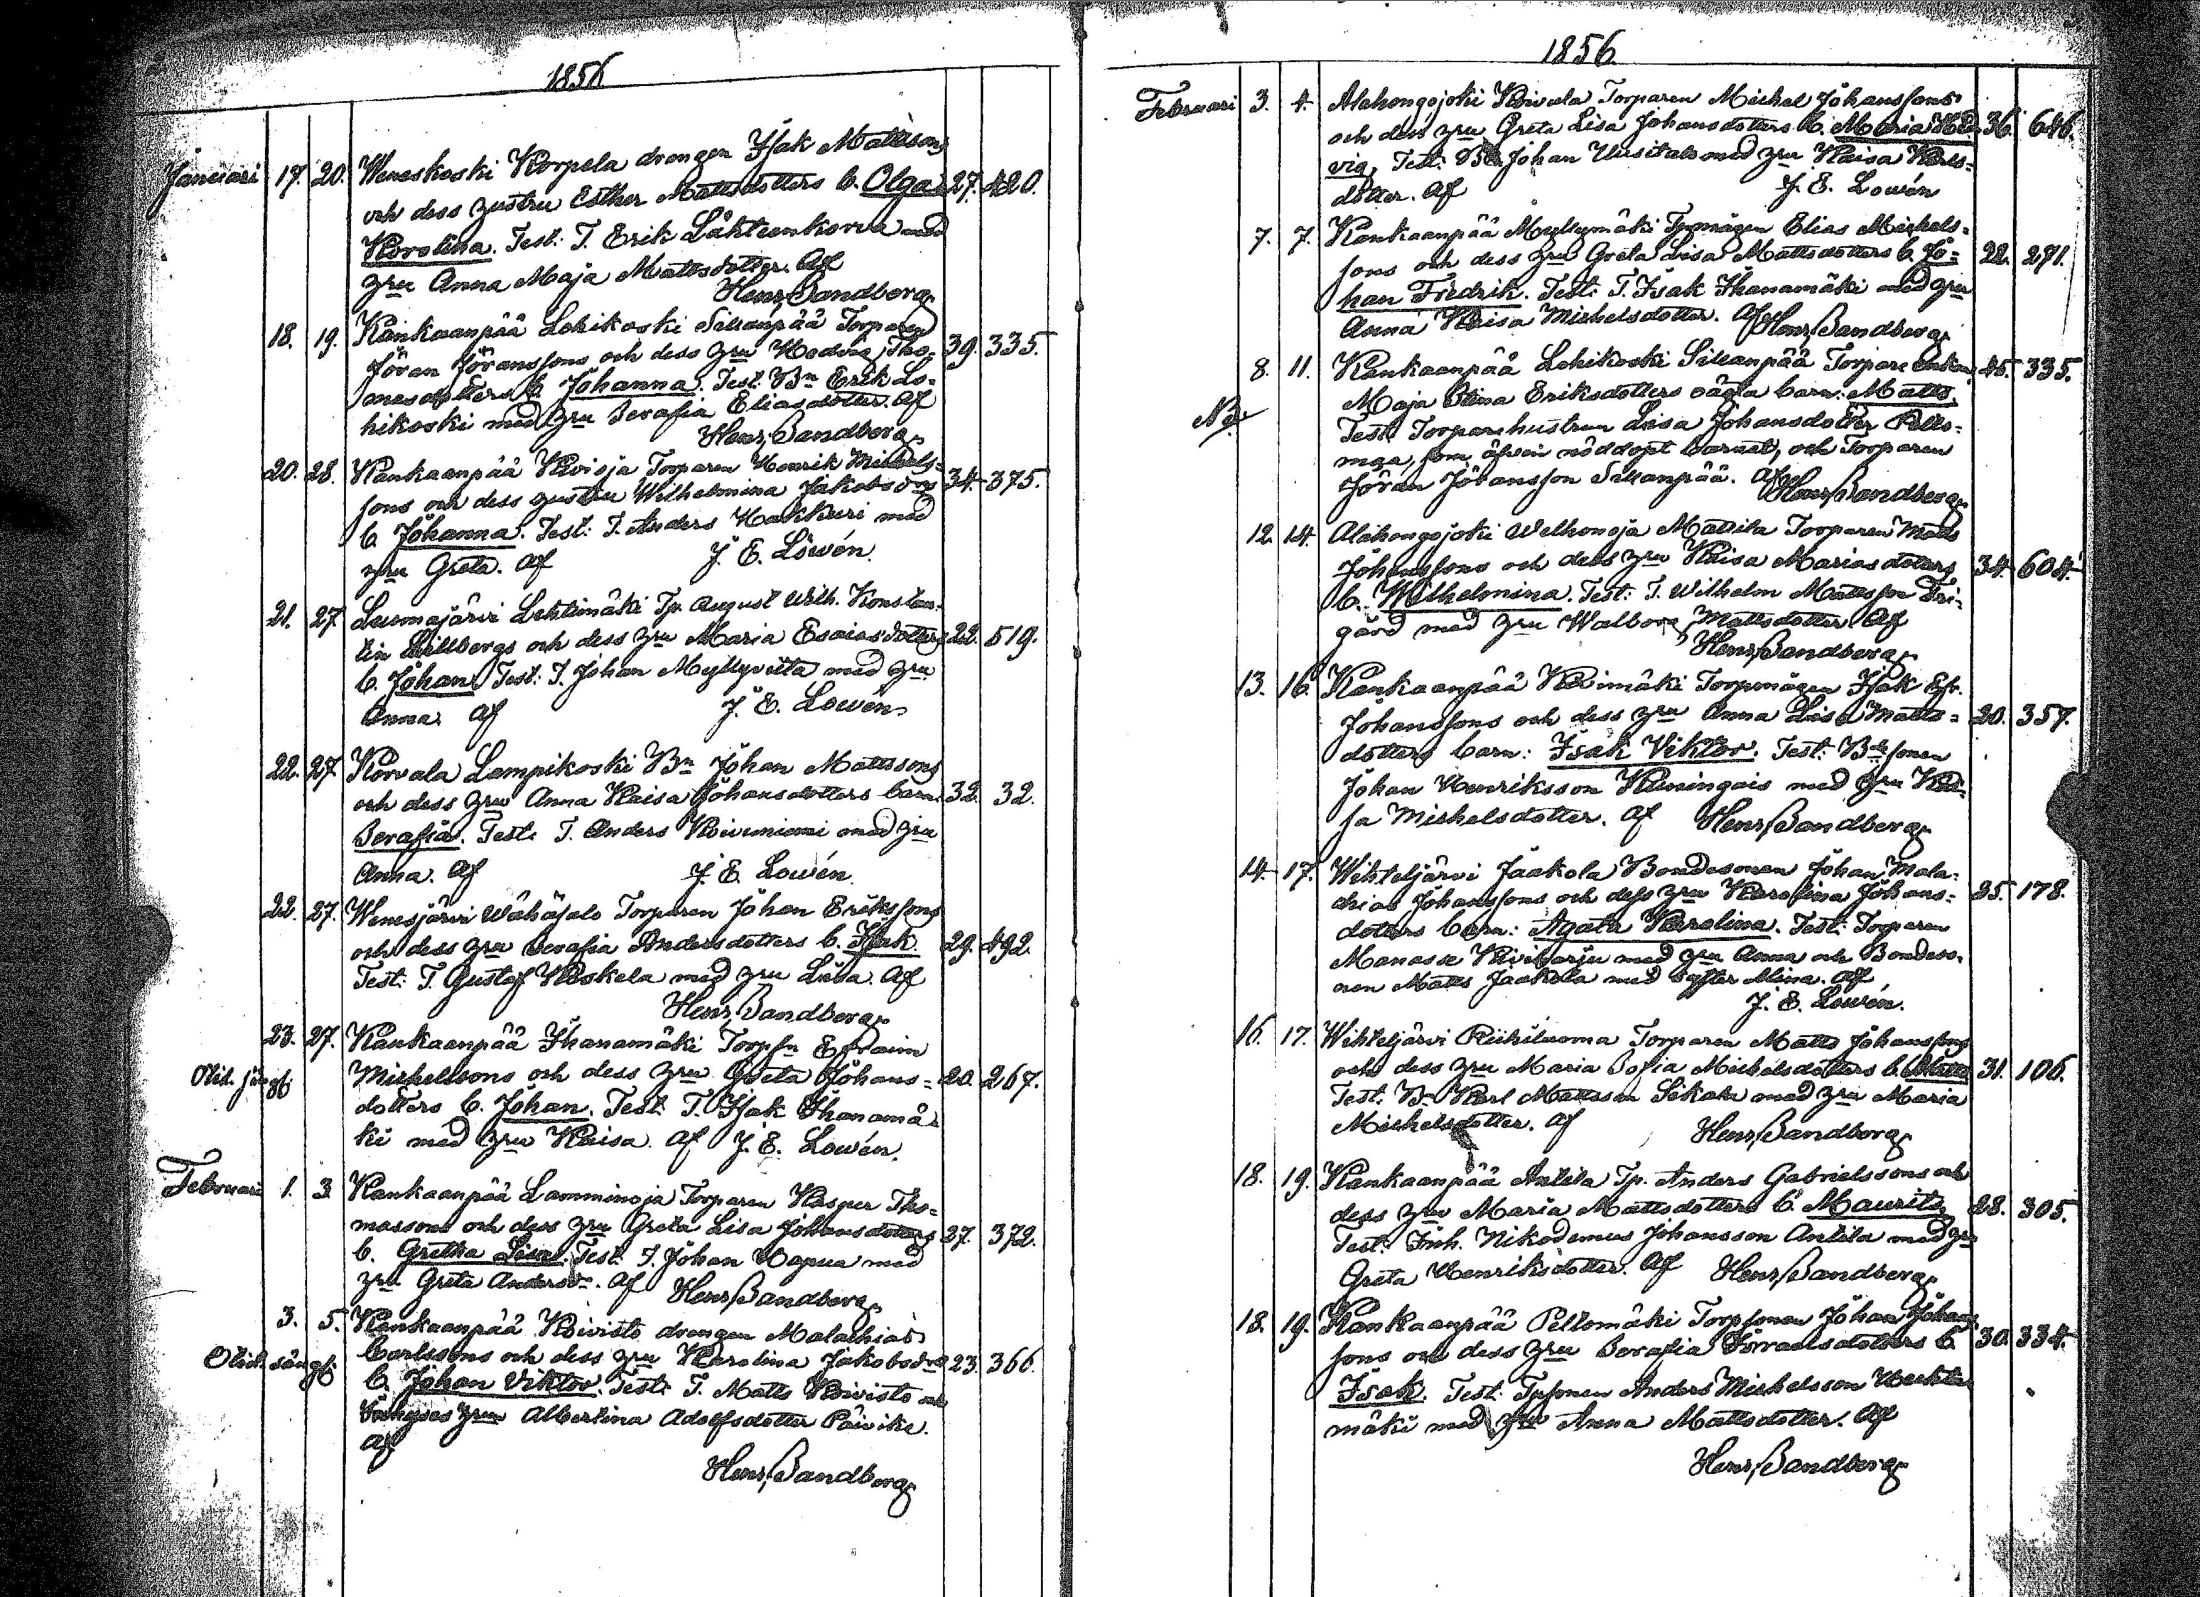 1856
Januari 17. 20. Weneskoski Korpela drengen Isak Mattssons
och dess hustru Esther Mattsdotters b. Olga 27. 420.
Karolina. Test: T. Erik Lähteenkorva med
hru Anna Maja Mattsdotter. Af
Henr. Sandberg
18. 19. Kankaanpää Lohikoski Sillanpää Torparen
Jöran Jöranssons och dess hru Hedvig Tho- 39. 335.
masdotters b. Johanna. Test: Bn Erik Lo-
hikoski med hru Serafia Eliasdotter. Af
Henr. Sandberg
20. 28. Kankaanpää Kivioja Torparen Henrik Michels-
sons och dess hustru Wilhelmina Jakobsdrs 34. 375.
b. Johanna. Test: T. Anders Hakkuri med
hru Greta. Af J. E. Löwén.
21. 27. Luomajärvi Lehtimäki Tp. August Wilh. Konstan-
tin Lillbergs och dess hru Maria Esaiasdotters 22. 519.
b. Johan. Test: T. Johan Myllyviita med hru
Anna. Af J. E. Löwén.
22. 27. Korvala Lampikoski Bn Johan Mattssons
och dess hru Anna Kaisa Johansdotters barn 32. 32.
Serafia. Test: T. Anders Koivuniemi med hru
Anna. Af J. E. Lowén.
22. 27. Wenesjärvi Wähäsalo Torparen Johan Erikssons
och dess hru Serafia Andersdotters b. Isak. 29. 492.
Test: T. Gustaf Koskela med hru Lisa. Af
Henr. Sandberg
23. 27. Kankaanpää Ihanamäki Torpsn Efraim
Michelssons och dess hru Greta Johans- 20. 267.
dotters b. Johan. Test: T. Isak Ihanamä-
ki med hru Kaisa. Af J. E. Lowén.
Februari 1. 3. Kankaanpää Lamminoja Torparen Kasper Tho-
massons och dess hru Greta Lisa Johansdotters 27. 372.
b. Gretha Lisa. Test: T. Johan Hapua med
hru Greta Andersdr. Af Henr. Sandberg
3. 5. Kankaanpää Koivisto drengen Malachias
Carlssons och dess hru Karolina Jakobsdrs 23. 366.
b. Johan Viktor. Test: T. Matts Koivisto och
hru Albertina Adolfsdotter Päivike.
Af
Henr. Sandberg
1856
Februari 3. 4. Alahongojoki Koivula Torparen Michel Johanssons
och dess hru Greta Lisa Johansdotters b. Maria Hed- 36. 646.
vig. Test: Bn Johan Uusitalo med hru Kaisa Karls-
dotter. Af J. E. Lowén
7. 7. Kankaanpää Myllymäki Tpmågen Elias Michels-
sons och dess hru Greta Lisa Mattsdotters b. Jo- 22. 291.
han Fredrik. Test: T. Isak Ihanamäki med hru
Anna Kaisa Michelsdotter. Af Henr. Sandberg
8. 11. Kankaanpää Lohikoski Sillanpää Torpare enkan 45. 335.
Maja Stina Eriksdotters oägta barn: Matts.
NB. Test: Torparehustrun Lisa Johansdotter Pelto-
maa, som äfven nöddöpt barnet, och Torparen
Jöran Jöransson Sillanpää. Af Henr. Sandberg
12. 14. Alahongojoki Welhonoja Mattila Torparen Matts
Johanssons och dess hru Kaisa Mariasdotters 34. 604.
b. Wilhelmina. Test: T. Wilhelm Mattsson Tri-
gård med hru Walborg Mattsdotter. Af
Henr. Sandberg
13. 16. Kankaanpää Koimäki Torpmågen Isak Efr.
Johanssons och dess hru Anna Lisa Matts- 20. 357.
dotters barn: Isak Viktor. Test: Bdesonen
Johan Henriksson Kuningais med hru Kai-
sa Michelsdotter. Af Henr. Sandberg
14. 17. Wihteljärvi Jaakola Bondesonen Johan Mala-
chias Johanssons och dess hru Karolina Johans- 25. 178.
dotters barn: Agata Karolina. Test: Torparen
Manasse Kiviharju med hru Anna och Bondeso-
nen Matts Jaakola med syster Mina. Af
J. E. Lowén.
16. 17. Wihteljärvi Riihiluoma Torparen Matts Johanssons
och dess hru Maria Sofia Michelsdotters b. Matts 31. 106.
Test: Bn Karl Mattsson Sikala med hru Maria
Michelsdotter. Af Henr. Sandberg
18. 19. Kankaanpää Anttila Tp. Anders Gabrielssons och
dess hru Maria Mattsdotters b. Maurits 28. 305.
Test: Inh. Nikodemus Johansson Anttila med hru
Greta Henriksdotter. Af Henr. Sandberg
18. 19. Kankaanpää Peltomäki Torpsonen Johan Johans-
sons och dess hru Serafia Israelsdotters b. 30. 334.
Isak. Test: Tpsonen Anders Michelsson
mäki med hru Anna Mattsdotter. Af
Henr. Sandberg